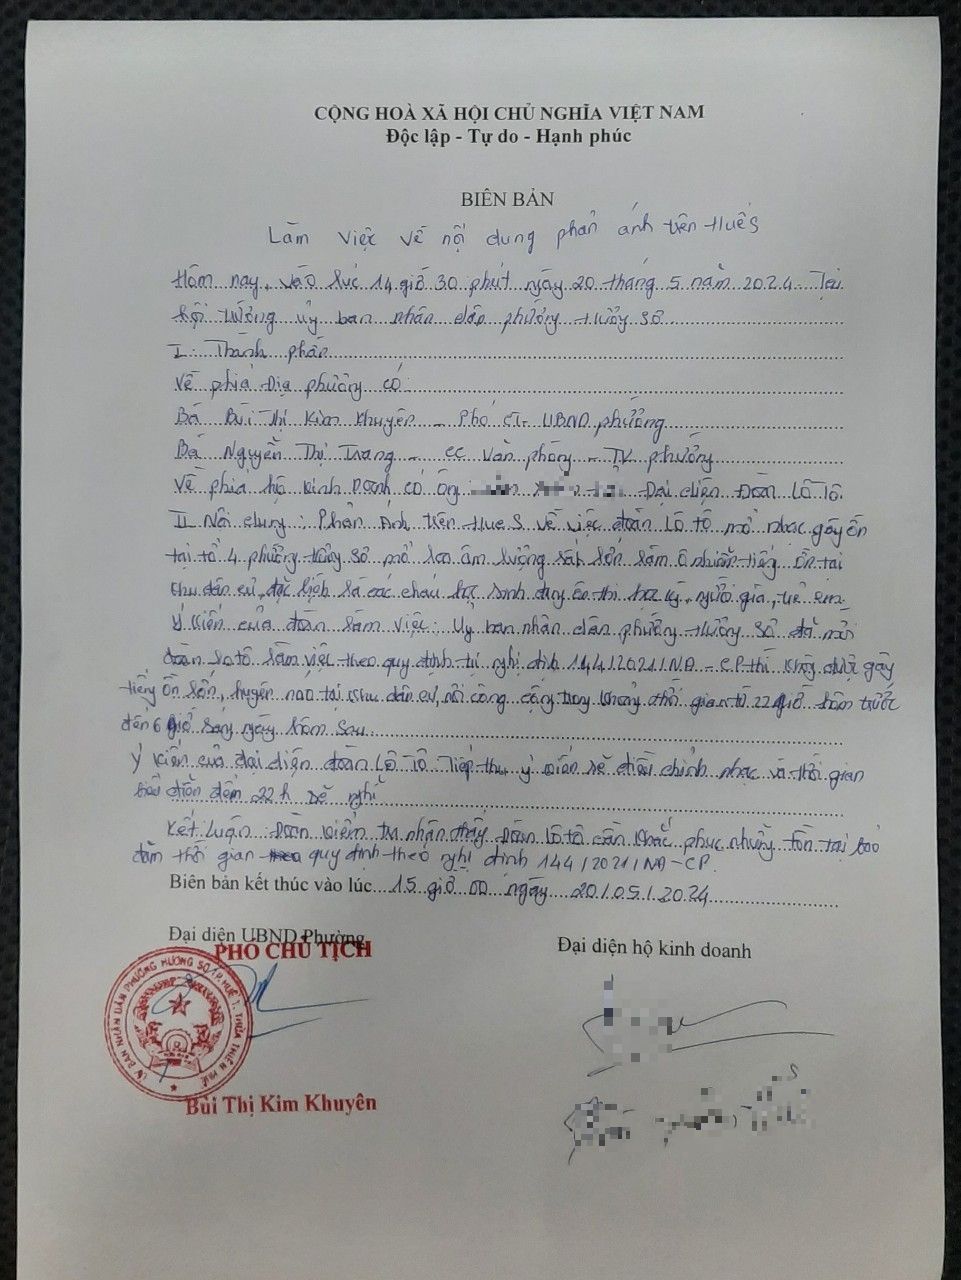 CỘNG HOÀ XÃ HỘI CHỦ NGHĨA VIỆT NAM
Độc lập - Tự do - Hạnh phúc
BIÊN BẢN
Làm việc về nội dung phản ánh trên HuếS
Hôm nay, vào lúc 14 giờ 30 phút ngày 20 tháng 5 năm 2024 Tại
hội trường ủy ban nhân dân phường Hương Sơ
I: Thành phần
Về phía Địa phường có:
Bà Bùi Thị Kim Khuyên - Phó CT- UBND phường
Bà Nguyễn Thị Trang - CC Văn phòng - TK phường
Về phía hộ kinh Doanh có ông Đại diện Đoàn Lô Tô.
II Nội dung: Phản Ánh trên Hue S về việc đoàn Lô tô mở nhạc gây ồn
tại tổ 4 phường Hương Sơ mở loa âm lượng rất lớn làm ô nhiễm tiếng ồn tại
khu dân cư, đặc biệt là các cháu học sinh đang ôn thi học kỳ, người già, trẻ em.
Ý kiến của đoàn làm việc: Ủy ban nhân dân phường Hương Sơ đã mời
đoàn lô tô làm việc theo quy định tại nghị định 144/2021/NĐ-CP thì không được gây
tiếng ồn lớn, huyên náo tại khu dân cư, nơi công cộng trong khoảng thời gian từ 22 giờ hôm trước
đến 6 giờ sáng ngày hôm sau.
Ý kiến của đại diện đoàn Lô Tô Tiếp thu ý kiến sẽ điều chỉnh nhạc và thời gian
biểu diễn đến 22h sẽ nghỉ
Kết luận: Đoàn kiểm tra nhận thấy Đoàn Lô tô cần khắc phục những tồn tại bảo
đảm thời gian quy định theo nghị định 144/2021/NĐ-CP.
Biên bản kết thúc vào lúc 15 giờ 00 ngày 20/05/2024
Đại diện UBND Phường
Đại diện hộ kinh doanh
PHÓ CHỦ TỊCH
ỦY BAN NHÂN DÂN PHƯỜNG HƯƠNG SƠ T.P. HUẾ T. THỪA THIÊN HUẾ
Bùi Thị Kim Khuyên